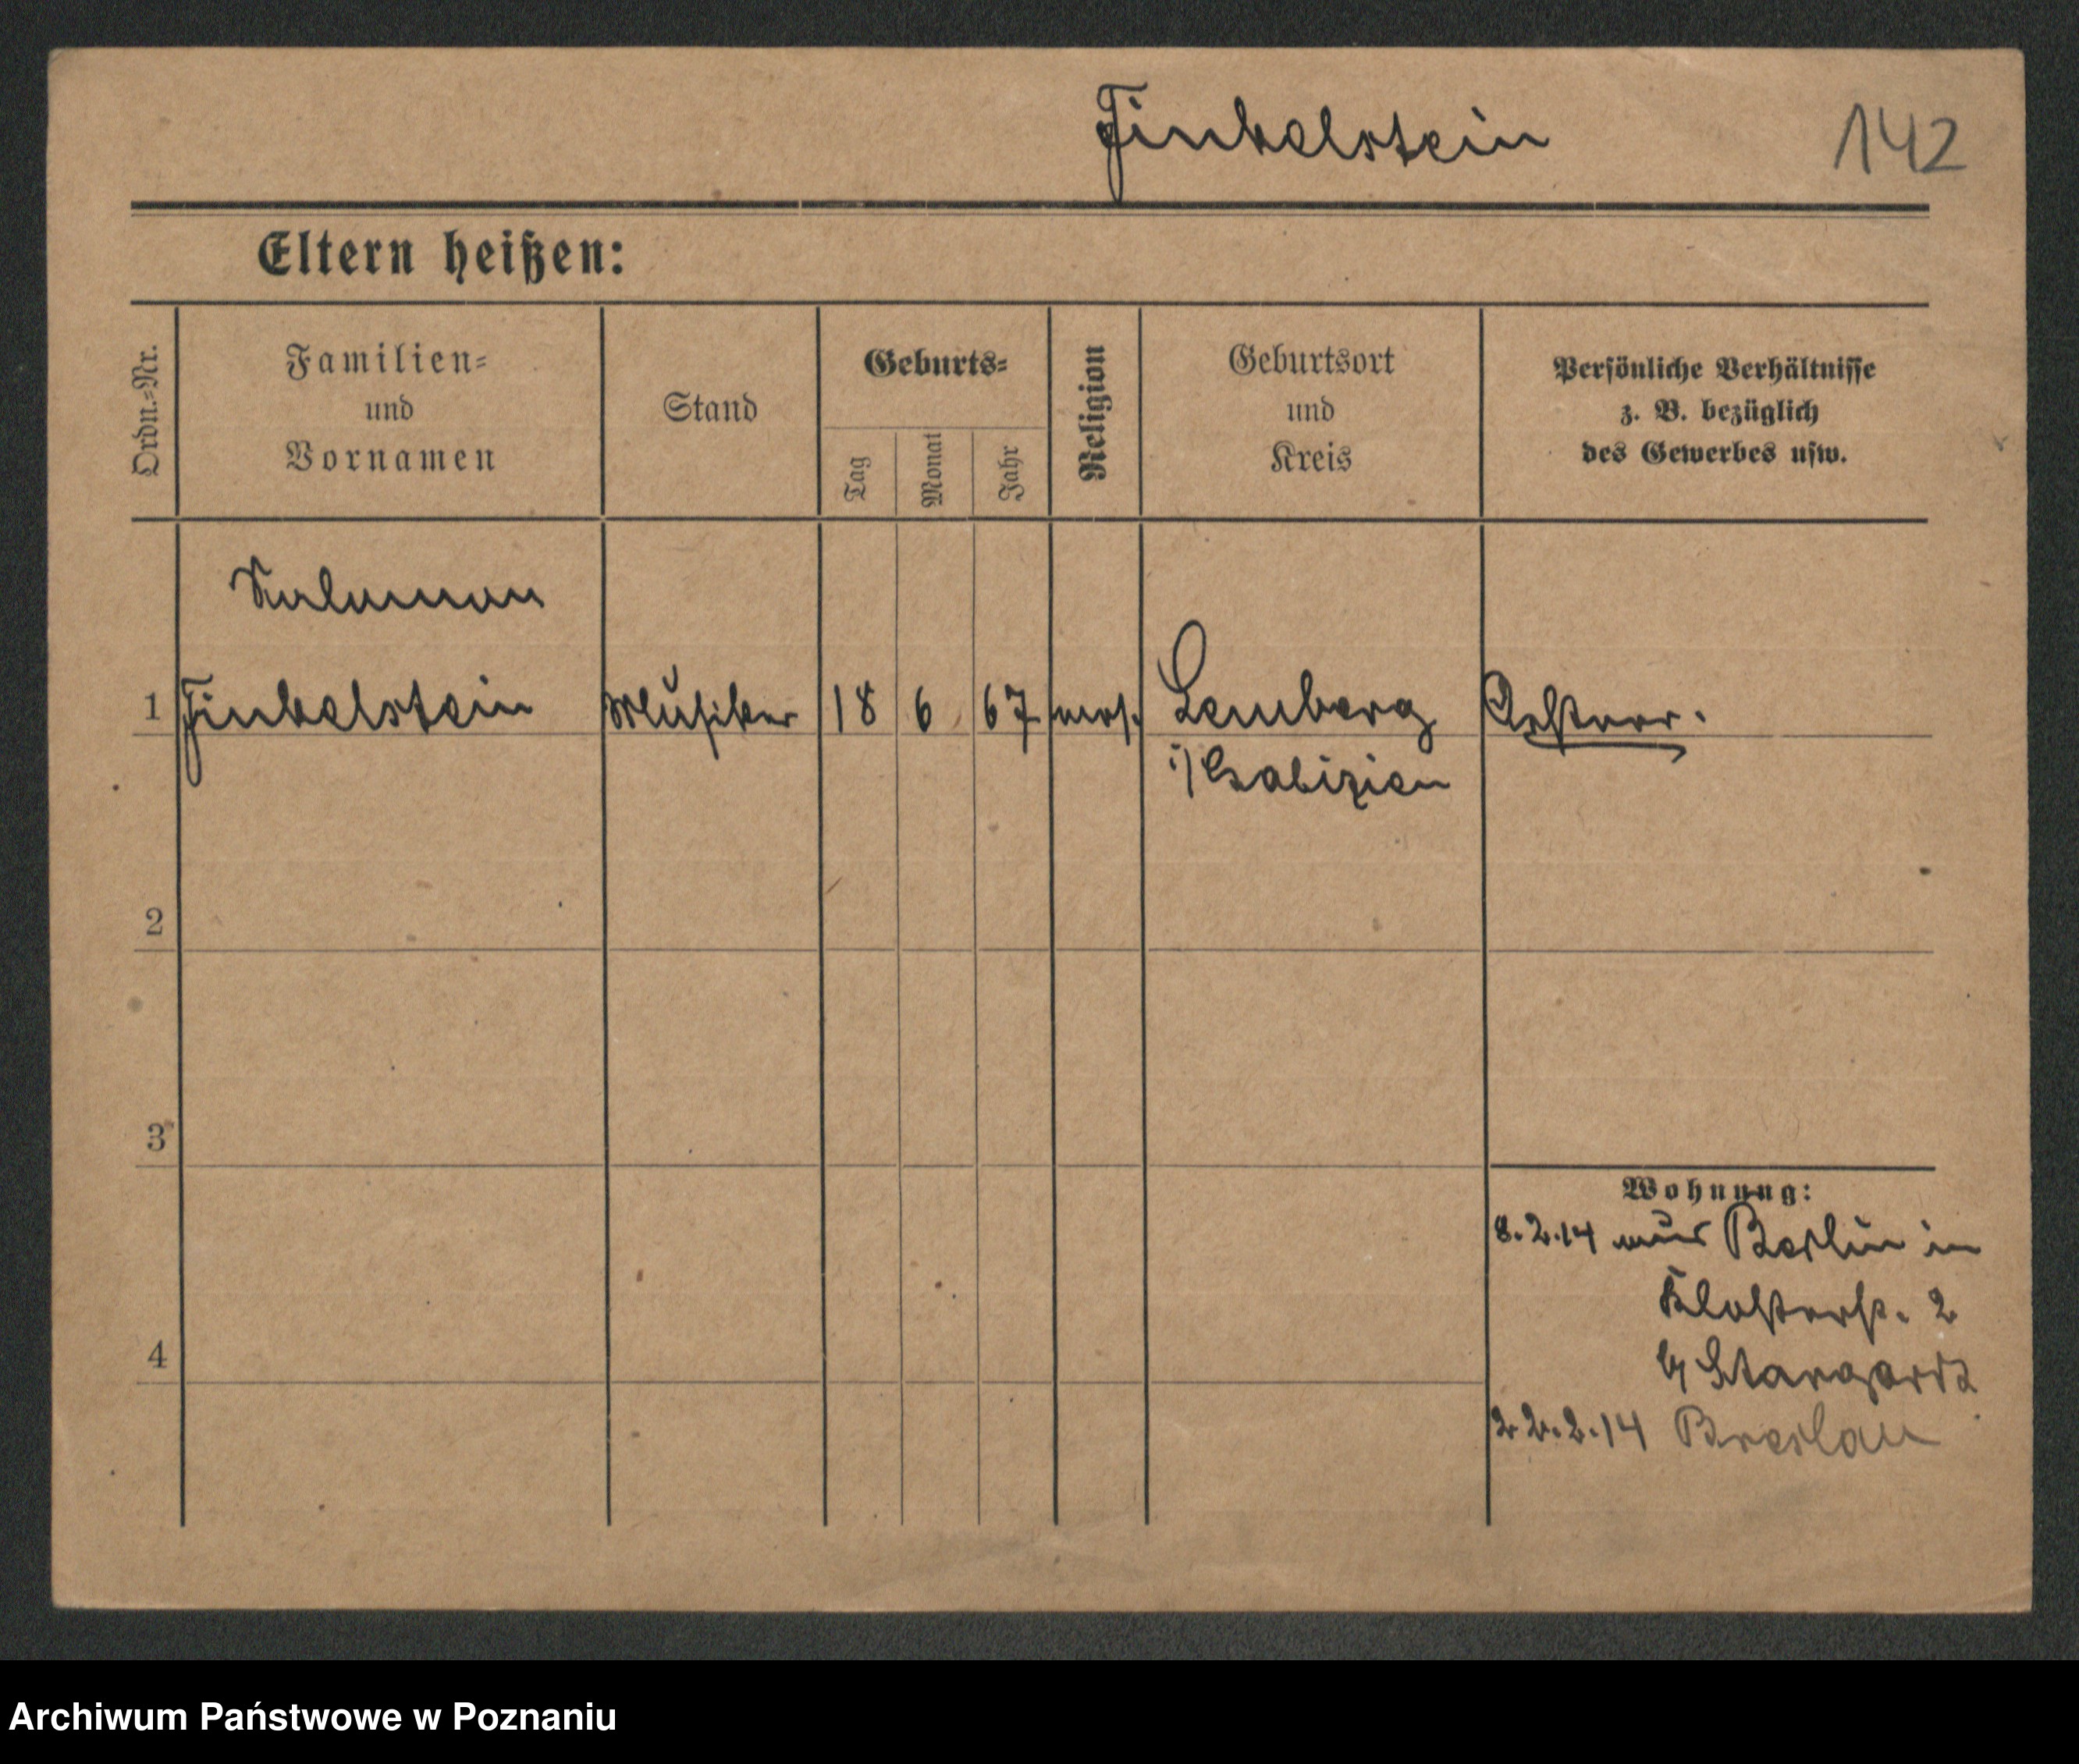 Finkelstein 142
Eltern heißen:
Ordn.-Nr.
Familien-
und
Vornamen
Stand
Geburts-
Tag
Monat
Jahr
Religion
Geburtsort
und
Kreis
Persönliche Verhältnisse
z. B. bezüglich
des Gewerbes usw.
1 Finkelstein Musiker 18 6 67 mos. Lemberg
i/Galizien
2
3
4
Wohnung:
8.2.14 aus Berlin in
Klosterst. 2
b/ Stargardt
22.2.14 Breslau
Archiwum Państwowe w Poznaniu